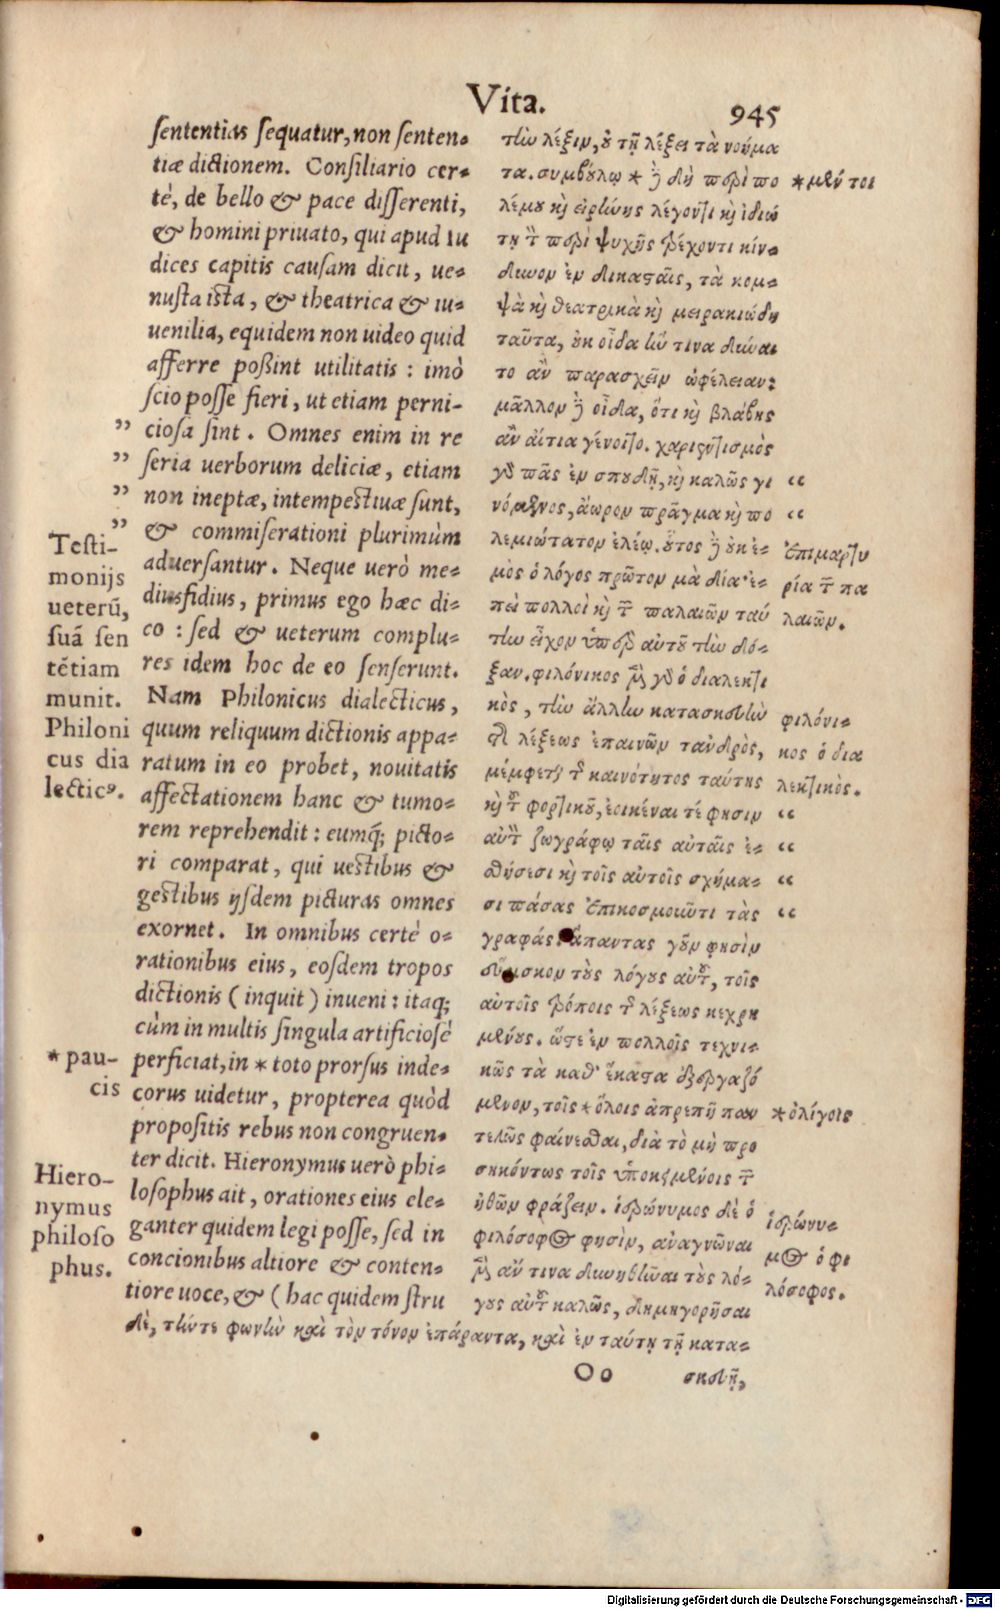 Vita.
945
sententias sequatur, non senten-
tiæ dictionem. Consiliario cer-
tè, de bello & pace disserenti,
& homini priuato, qui apud iu
dices capitis causam dicit, ue-
nusta ista, & theatrica & iu-
uenilia, equidem non uideo quid
afferre possint utilitatis : imò
scio posse fieri, ut etiam perni-
” ciosa sint. Omnes enim in re
” seria uerborum deliciæ, etiam
” non ineptæ, intempestiuæ sunt,
” & commiserationi plurimùm
aduersantur. Neque uerò me-
diusfidius, primus ego hæc di-
co : sed & ueterum complu-
res idem hoc de eo senserunt.
Nam Philonicus dialecticus,
quum reliquum dictionis appa-
ratum in eo probet, nouitatis
affectationem hanc & tumo-
rem reprehendit : eumq́; picto-
ri comparat, qui uestibus &
gestibus ijsdem picturas omnes
exornet. In omnibus certè o-
rationibus eius, eosdem tropos
dictionis (inquit) inueni : itaq;
cùm in multis singula artificiosè
perficiat, in * toto prorsus inde-
corus uidetur, propterea quòd
propositis rebus non congruen-
ter dicit. Hieronymus uerò phi-
losophus ait, orationes eius ele-
ganter quidem legi posse, sed in
concionibus altiore & conten-
tiore uoce, & (hac quidem stru
Testi-
monijs
ueterũ,
suã sen
tẽtiam
munit.
Philoni
cus dia
lectic⁹.
* pau-
cis
Hiero-
nymus
philoso
phus.
τὴν λέξιν, οὐ τῇ λέξει τὰ νοήμα
τα. συμβούλῳ * ϳ δὴ περὶ πο
λέμου καὶ εἰρήνης λέγοντι καὶ ἰδιώ
τῃ τὸν περὶ ψυχῆς τρέχοντι κίν-
δυνον ἐν δικασταῖς, τὰ κομ-
ψὰ καὶ θεατρικὰ καὶ μειρακιώδη
ταῦτα, οὐκ οἶδα ἥν τινα δύναι
το ἂν παρασχεῖν ὠφέλειαν:
μᾶλλον δὲ οἶδα, ὅτι καὶ βλάβης
ἂν αἰτία γένοιτο. χαριεντισμὸς
γὰρ πᾶς ἐν σπουδῇ, καὶ καλῶς γι “
νόμενος, ἄωρον πρᾶγμα καὶ πο “
λεμιώτατον ἐλέῳ. οὗτος δὲ οὐκ ἐ-
μὸς ὁ λόγος πρῶτον μὰ δία· ἐ-
πεὶ πολλοὶ καὶ τῶν παλαιῶν ταύ
την εἶχον ὑπὲρ αὐτοῦ τὴν δό-
ξαν. φιλόνικος μὲν γὰρ ὁ διαλεκτι
κὸς, τὴν ἄλλην κατασκευὴν
τῆς λέξεως ἐπαινῶν τἀνδρὸς,
μέμφεται τῆς καινότητος ταύτης
καὶ τοῦ φορτικοῦ, ἐοικέναι τέ φησιν “
αὐτὸν ζωγράφῳ ταῖς αὐταῖς ἐ- “
σθήσεσι καὶ τοῖς αὐτοῖς σχήμα- “
σι πάσας ἐπικοσμοῦντι τὰς “
γραφάς· ἅπαντας γοῦν φησὶν
εὕρισκον τοὺς λόγους αὐτοῦ, τοῖς
αὐτοῖς τρόποις τῆς λέξεως κεχρη
μένους. ὥστε ἐν πολλοῖς τεχνι-
κῶς τὰ καθ’ ἕκαστα ἐξεργαζό
μενον, τοῖς * ὅλοις ἀπρεπῆ παν
τελῶς φαίνεσθαι, διὰ τὸ μὴ προ
σηκόντως τοῖς ὑποκειμένοις τῶν
ἠθῶν φράζειν. ἱερώνυμος δὲ ὁ
φιλόσοφος φησὶν, ἀναγνῶναι
μὲν ἄν τινα δυνηθῆναι τοὺς λό-
γους αὐτοῦ καλῶς, δημηγορῆσαι
δὲ, τήν τε φωνὴν καὶ τὸν τόνον ἐπάραντα, καὶ ἐν ταύτῃ τῇ κατα-
* μέν τοι
ἐπιμαρτυ
ρία τῶν πα
λαιῶν.
φιλόνι-
κος ὁ δια
λεκτικὸς.
* ὀλίγοις
ἱερώνυ-
μος ὁ φι
λόσοφος.
Oo
σκευῇ,
Digitalisierung gefördert durch die Deutsche Forschungsgemeinschaft - DFG